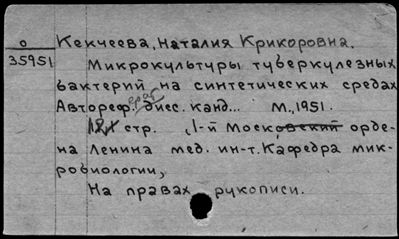 О
35951
Кекчеева, Наталия Крикоровна.
Микрокультуры туберкулезных
бактерий на синтетических средах
Автореф. дисс. канд... М., 1951.
стр. 1-й Московский орде-
на Ленина мед. ин-т. Кафедра мик-
робиологии,
На правах рукописи.